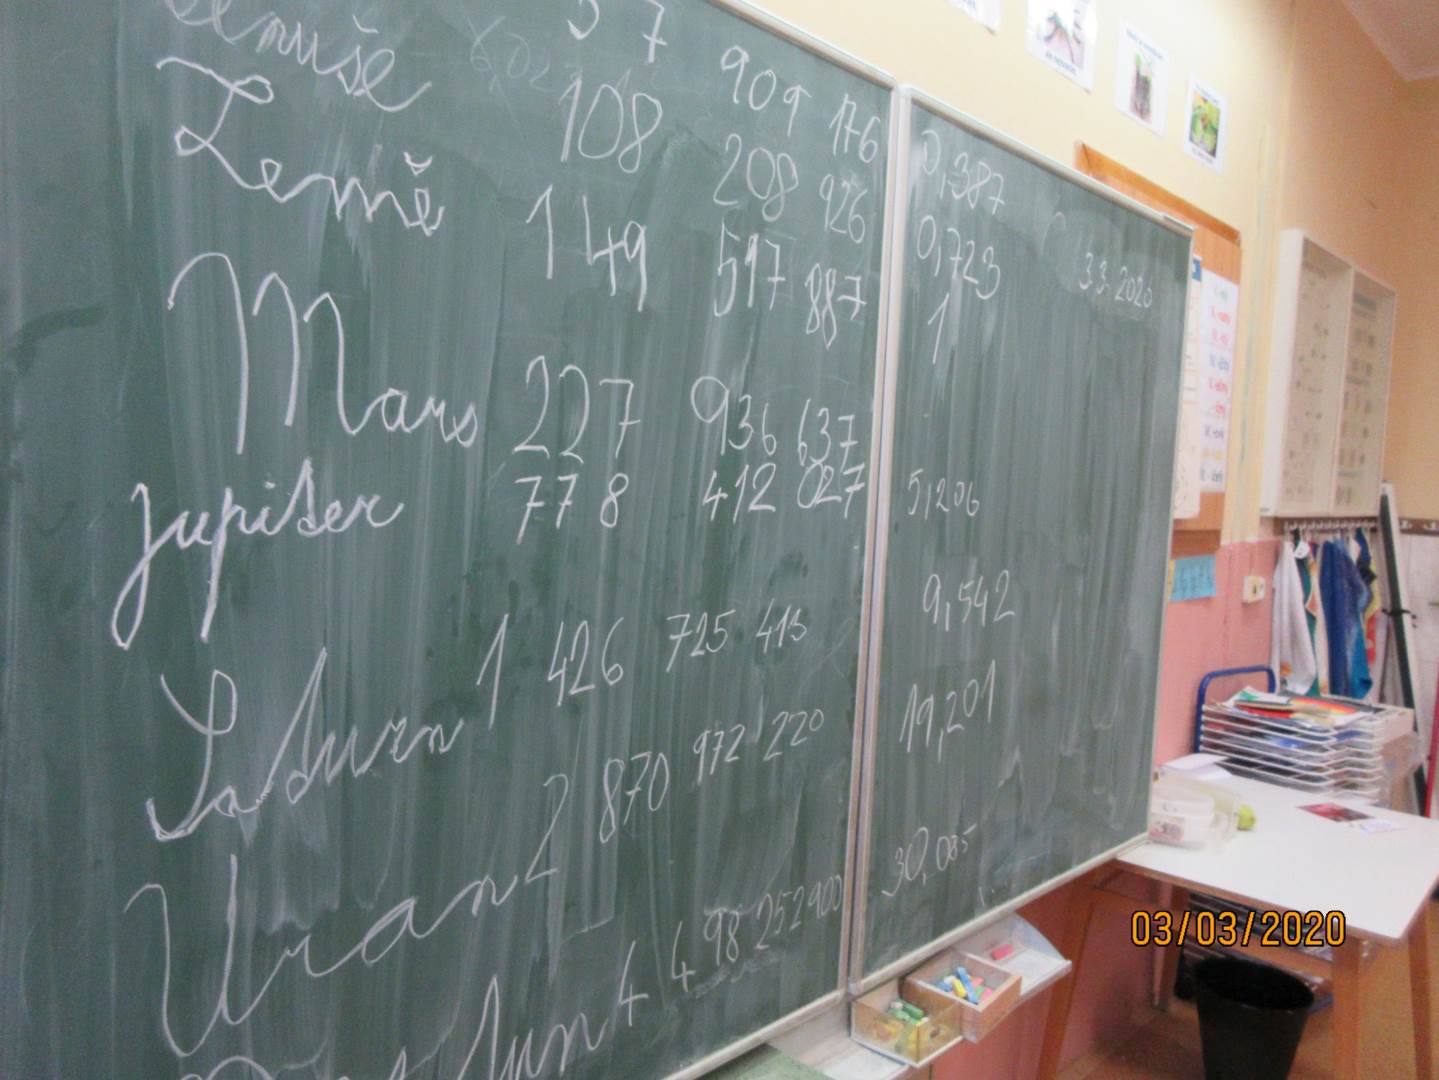 57 909 176 0,387
Venuše 108 208 926 0,723
Země 149 597 887 1
3.3.2020
Mars 227 936 637
Jupiter 778 412 027 5,206
Saturn 1 426 725 413 9,542
Uran 2 870 972 220 19,201
4 498 252 900 30,085
03/03/2020